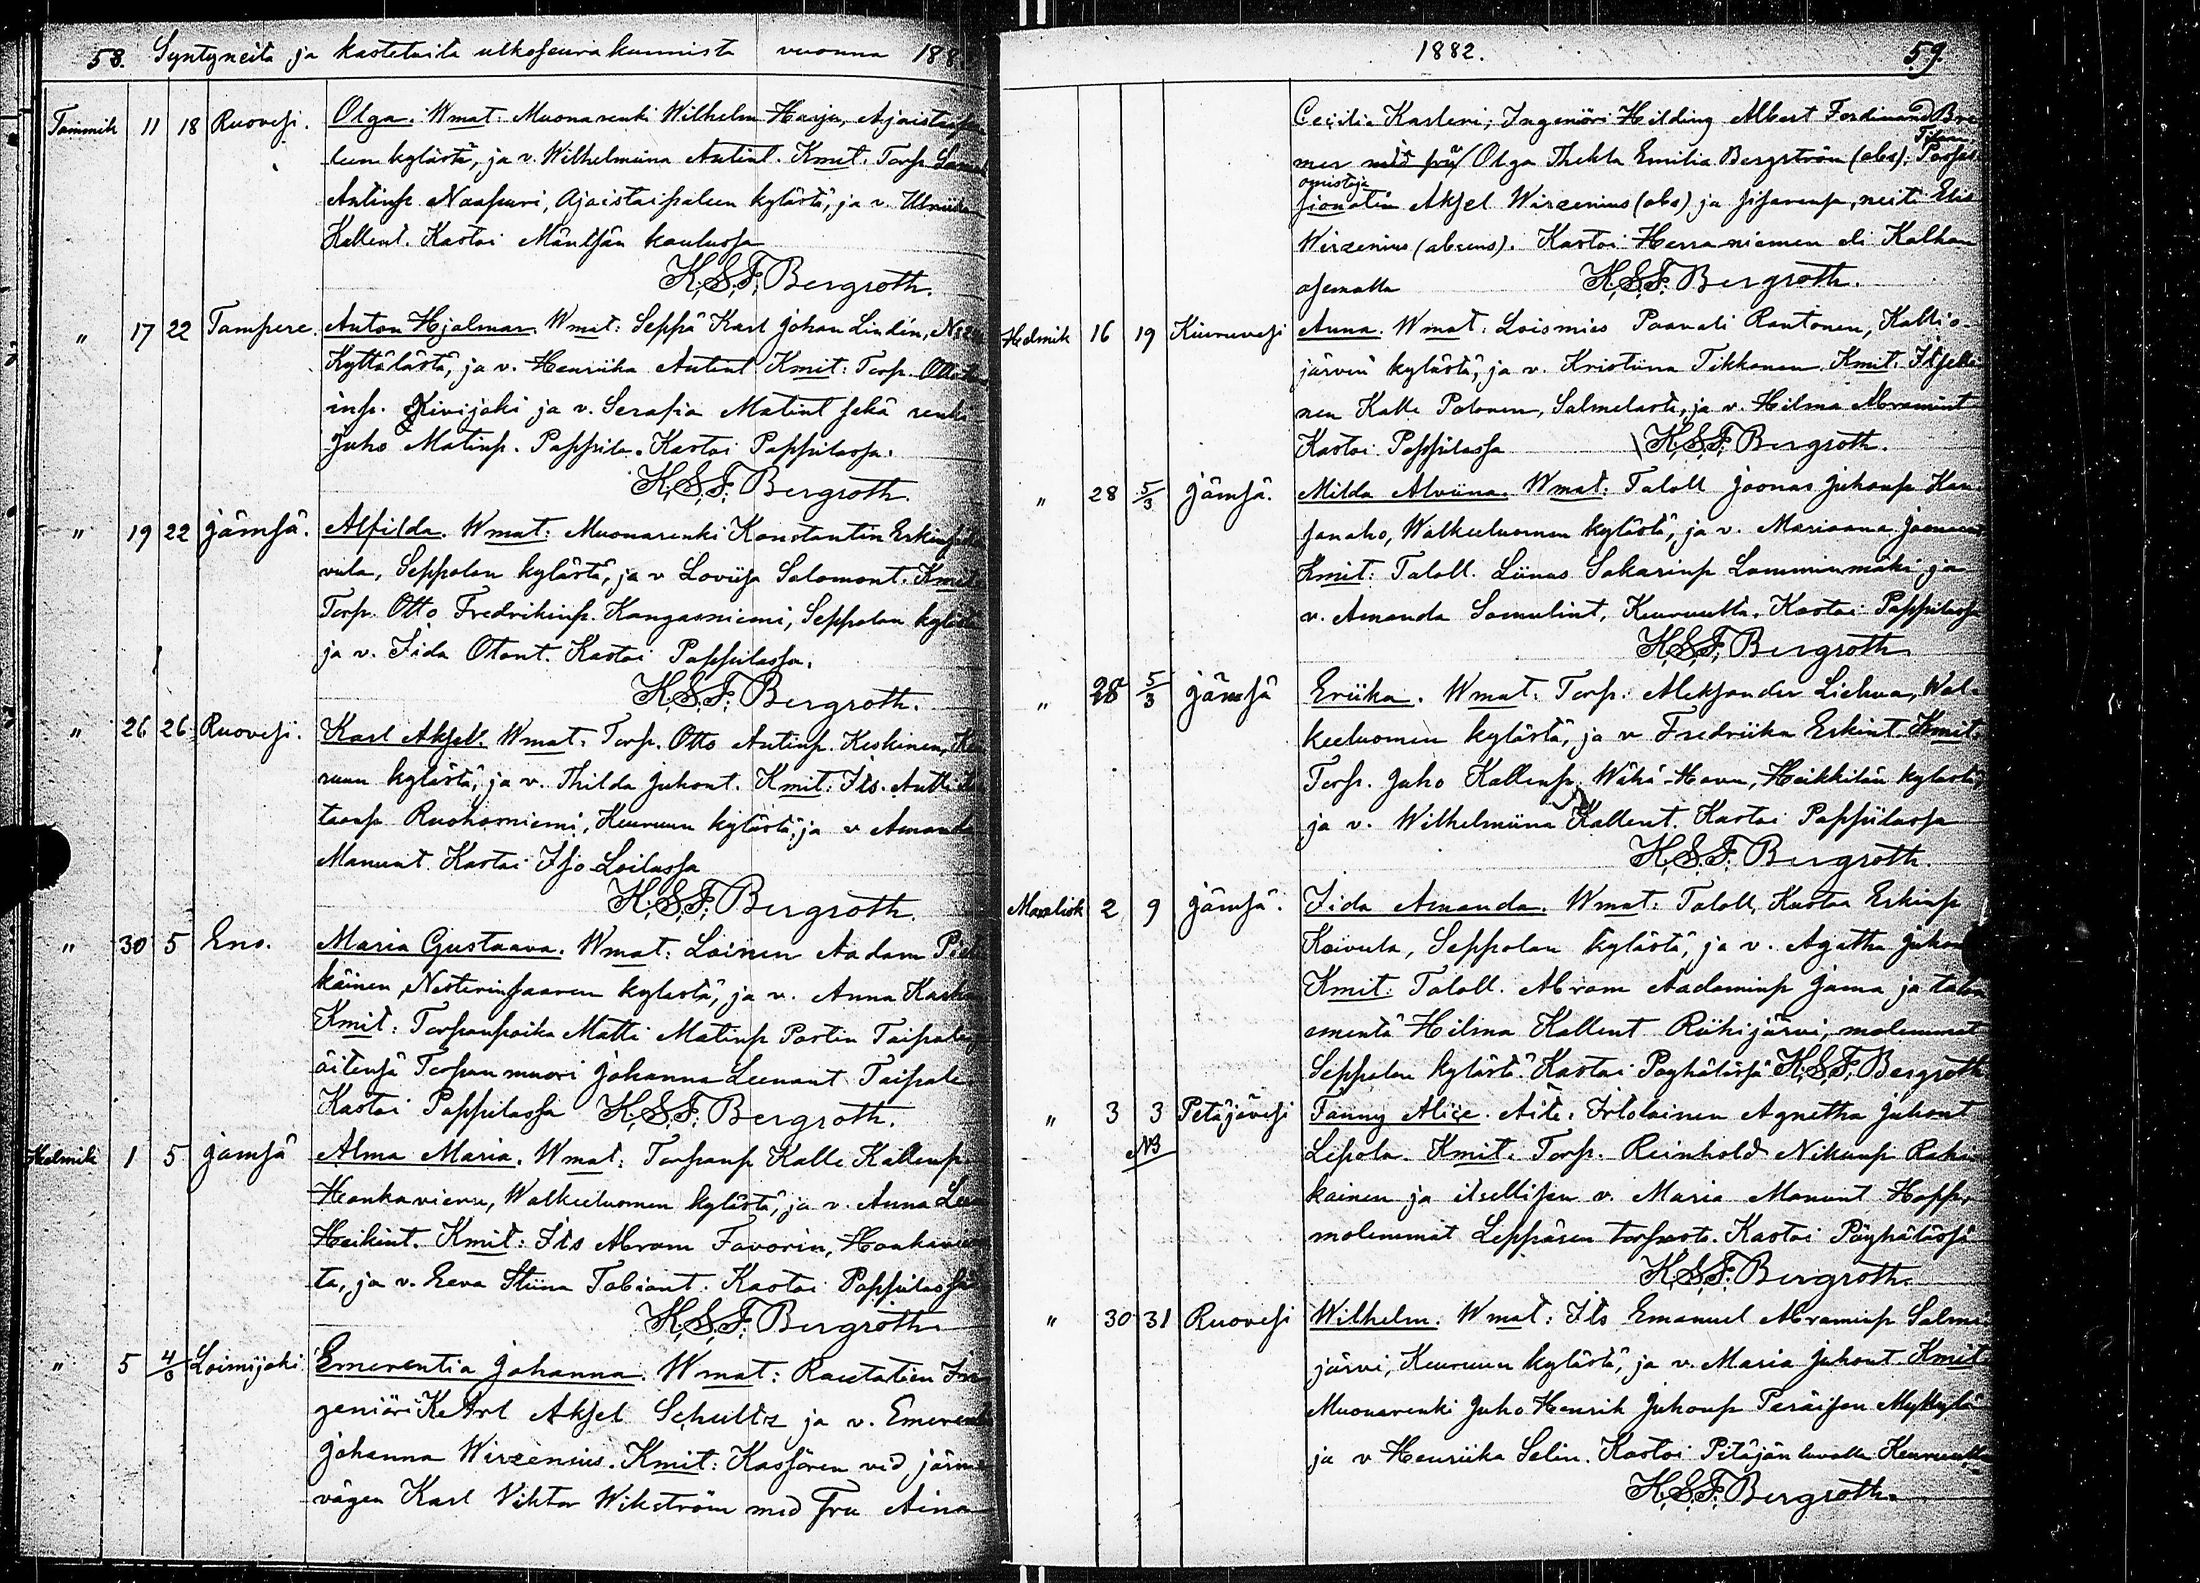 58. Syntyneitä ja kastetuita ulkoseurakunnista vuonna 188
Tammik 11 18 Ruovesi. Olga. Wmat: Muonarenki Wilhelm Harju,
leen kylästä, ja v. Wilhelmiina Antint. Kmit. Torp.
Antinp Naapuri, Ajaistaipaleen kylästä, ja v. Ulriika
Kallent. Kastoi Mäntsän koulussa
K.S.F. Bergroth.
" 17 22 Tampere. Anton Hjalmar. Wmat: Seppä Karl Johan Lindén,
Kyttälästä, ja v. Henriika Antint Kmit: Torp.
inp. Kivijoki ja v. Serafia Matint sekä renki
Juho Matinp. Pappila. Kastoi Pappilassa.
K.S.F. Bergroth.
" 19 22 Jämsä. Alfilda. Wmat: Muonarenki Konstantin
vula, Seppolan kylästä, ja v Loviisa Salomont. Kmit
Torp. Otto Fredrikinp. Kangasniemi, Seppolan kylästä
ja v. Iida Otont. Kastoi Pappilassa.
K.S.F. Bergroth.
" 26 26 Ruovesi. Karl Aksel. Wmat: Torp. Otto Antinp. Keskinen, Keu
ruun kylästä, ja v. Thilda Juhont. Kmit: Its. Antti
taanp Ruohoniemi, Keuruun kylästä, ja v Amanda
Manunt. Kastoi Iso-Loilassa
K.S.F. Bergroth.
" 30 5 Eno. Maria Gustaava. Wmat: Loinen Aadam
käinen, Nesterinsaaren kylästä, ja v. Anna
Kmit: Torpanpoika Matti Matinp Portin Taipale
äitensä Torpan muori Johanna Leenant Taipale
Kastoi Pappilassa K.S.F. Bergroth.
Helmik 1 5 Jämsä Alma Maria. Wmat: Torpanp Kalle Kallenp
Honkavieru, Walkeeluomen kylästä, ja v. Anna
Heikint. Kmit: Its Abram Favorin,
ta, ja v. Eeva Stiina Tobiant. Kastoi Pappilassa
K.S.F. Bergroth
" 5 Loimijoki Emerentia Johanna. Wmat: Rautatien In
geniöri Karl Aksel Schultz ja v. Emerentia
Johanna Wirzenius. Kmit: Kassören vid järn
vägen Karl Viktor Wikström med Fru Aina
1882. 59.
Cecilia Karleni; Ingeniöri Hilding Albert Ferdinand Bre
mer med fru Olga Thekla Emilia Bergström (abs);
omistaja
Aksel Wirzenius (abs) ja sisarensa, neiti Elis
Wirzenius (absens). Kastoi Herraniemen eli Kalhan
asemalla K.S.F. Bergroth.
Helmik 16 19 Kiuruvesi Anna. Wmat: Loismies Paavali Rautonen, Kallio-
järven kylästä, ja v. Kristiina Tikkanen Kmit: Itselli
nen Kalle Polonen, Salmelasta, ja v. Hilma Abramint
Kastoi Pappilassa K.S.F. Bergroth.
" 28 5/3 Jämsä. Milda Alviina. Wmat: Taloll Joonas Juhonp Kan
sanaho, Walkeeluomen kylästä, ja v. Mariaana
Kmit: Taloll. Liinus Sakarinp Lamminmäki ja
v. Amanda Samulint, Keuruulta. Kastoi Pappilassa
K.S.F. Bergroth
" 28 5/3 Jämsä Eriika. Wmat: Torp. Aleksander Liehua, Wal-
keeluomen kylästä, ja v Fredriika Erkint. Kmit:
Torp. Juho Kallenp. Wähä-Havu, Heikkilän kylästä,
ja v. Wilhelmiina Kallent. Kastoi Pappilassa
K.S.F. Bergroth.
Maalisk 2 9 Jämsä. Iida Amanda. Wmat: Taloll. Kustaa Erkinp
Koivula, Seppolan kylästä, ja v. Agatha
Kmit: Taloll. Abram Aadaminp Jama ja talon
emäntä Hilma Kallent Riihijärvi, molemmat
Seppolan kylästä. Kastoi Pöyhölässä K.S.F. Bergroth
" 3 3 Petäjävesi Fanny Alice. Äiti: Irtolainen Agnetha Juhont
NB Lepola. Kmit: Torp. Reinhold Nikunp
kainen ja itsellisen v. Maria Manunt Hopp,
molemmat Leppäsen torpasta. Kastoi Pöyhölässä
K.S.F. Bergroth.
" 30 31 Ruovesi Wilhelm. Wmat: Its Emanuel Abraminp Salmi
järvi, Keuruun kylästä, ja v. Maria Juhont. Kmit
Muonarenki Juho Henrik Juhonp
ja v Henriika Selin. Kastoi Pitäjän tuvalla Keuruulla
K.S.F. Bergroth.